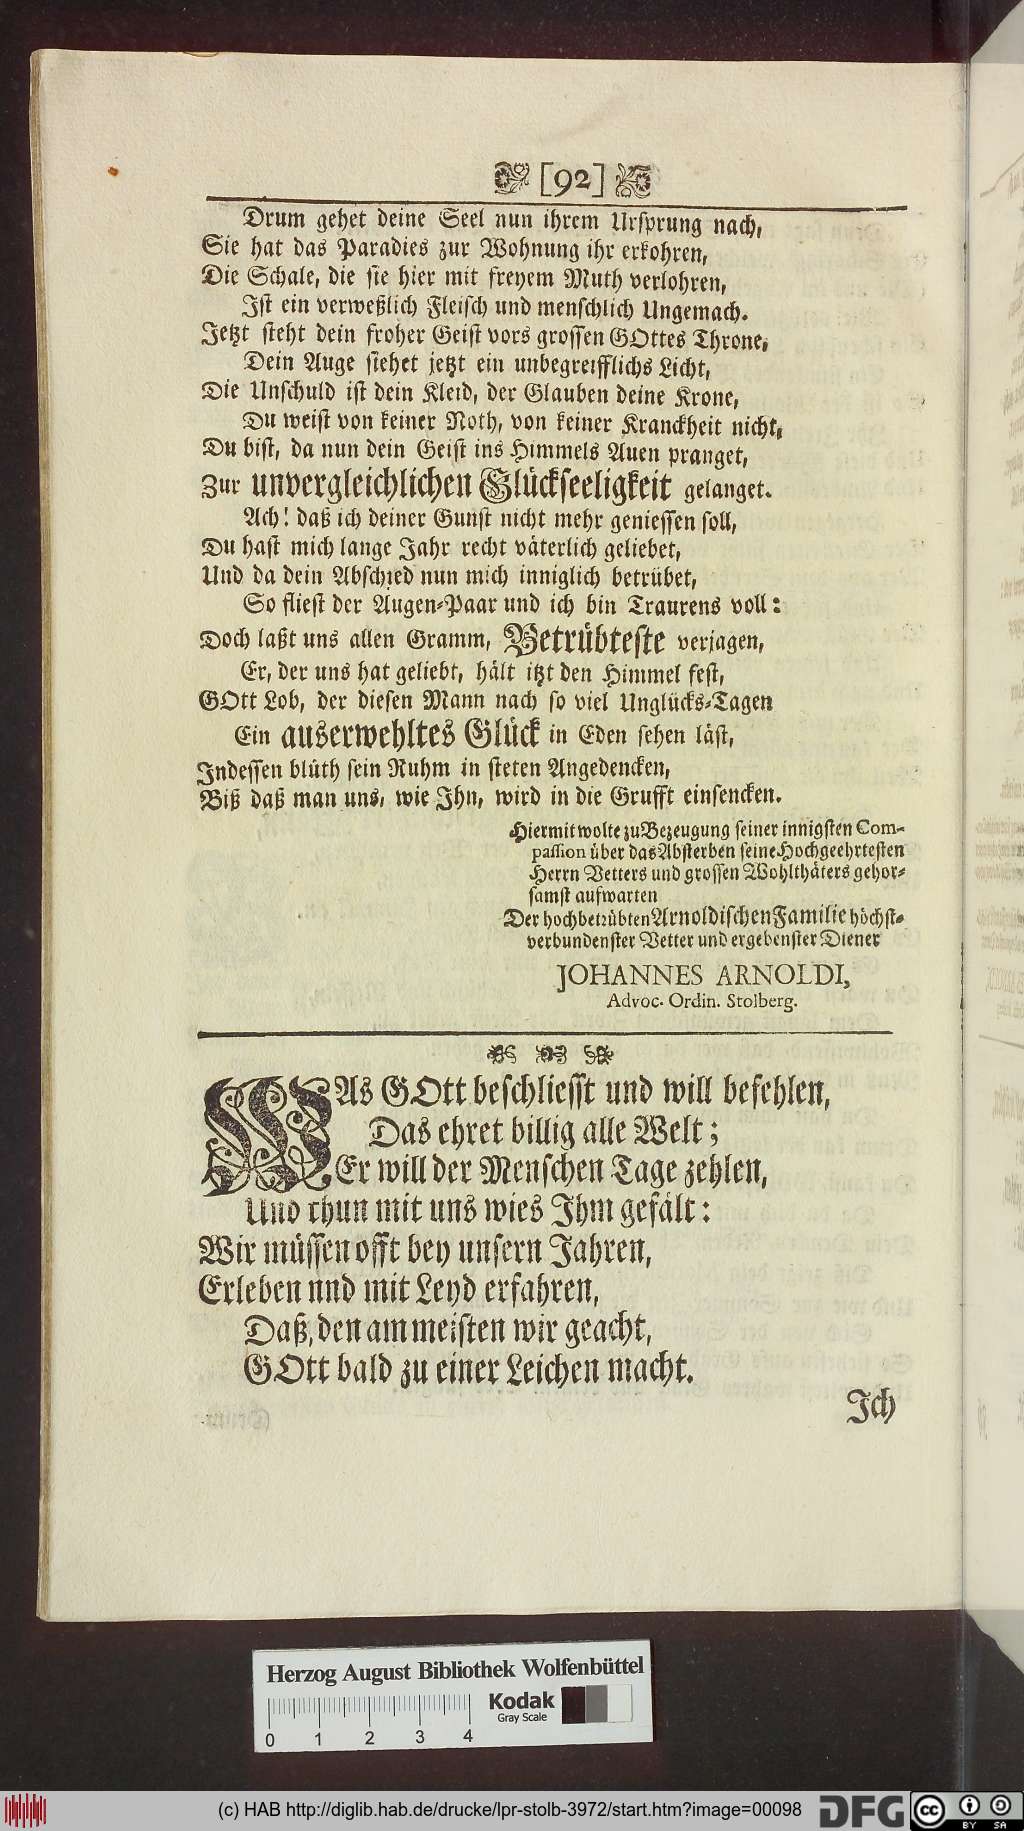 [92]
Drum gehet deine Seel nun ihrem Ursprung nach,
Sie hat das Paradies zur Wohnung ihr erkohren,
Die Schale, die sie hier mit freyem Muth verlohren,
Ist ein verweßlich Fleisch und menschlich Ungemach.
Jetzt steht dein froher Geist vors grossen GOttes Throne,
Dein Auge siehet jetzt ein unbegreifflichs Licht,
Die Unschuld ist dein Kleid, der Glauben deine Krone,
Du weist von keiner Noth, von keiner Kranckheit nicht,
Du bist, da nun dein Geist ins Himmels Auen pranget,
Zur unvergleichlichen Glückseeligkeit gelanget.
Ach! daß ich deiner Gunst nicht mehr geniessen soll,
Du hast mich lange Jahr recht väterlich geliebet,
Und da dein Abschied nun mich inniglich betrübet,
So fliest der Augen-Paar und ich bin Traurens voll:
Doch laßt uns allen Gramm, Betrübteste verjagen,
Er, der uns hat geliebt, hält itzt den Himmel fest,
GOtt Lob, der diesen Mann nach so viel Unglücks-Tagen
Ein auserwehltes Glück in Eden sehen läst,
Indessen blüth sein Ruhm in steten Angedencken,
Biß daß man uns, wie Ihn, wird in die Grufft einsencken.
Hiermit wolte zu Bezeugung seiner innigsten Com-
passion über das Absterben seine Hochgeehrtesten
Herrn Vetters und grossen Wohlthäters gehor-
samst aufwarten
Der hochbetrübten Arnoldischen Familie höchst-
verbundenster Vetter und ergebenster Diener
JOHANNES ARNOLDI,
Advoc. Ordin. Stolberg.
WAs GOtt beschliesst und will befehlen,
Das ehret billig alle Welt;
Er will der Menschen Tage zehlen,
Und thun mit uns wies Ihm gefält:
Wir müssen offt bey unsern Jahren,
Erleben nnd mit Leyd erfahren,
Daß, den am meisten wir geacht,
GOtt bald zu einer Leichen macht.
Ich
Herzog August Bibliothek Wolfenbüttel
Kodak
Gray Scale
0 1 2 3 4
(c) HAB http://diglib.hab.de/drucke/lpr-stolb-3972/start.htm?image=00098
DFG
cc BY SA